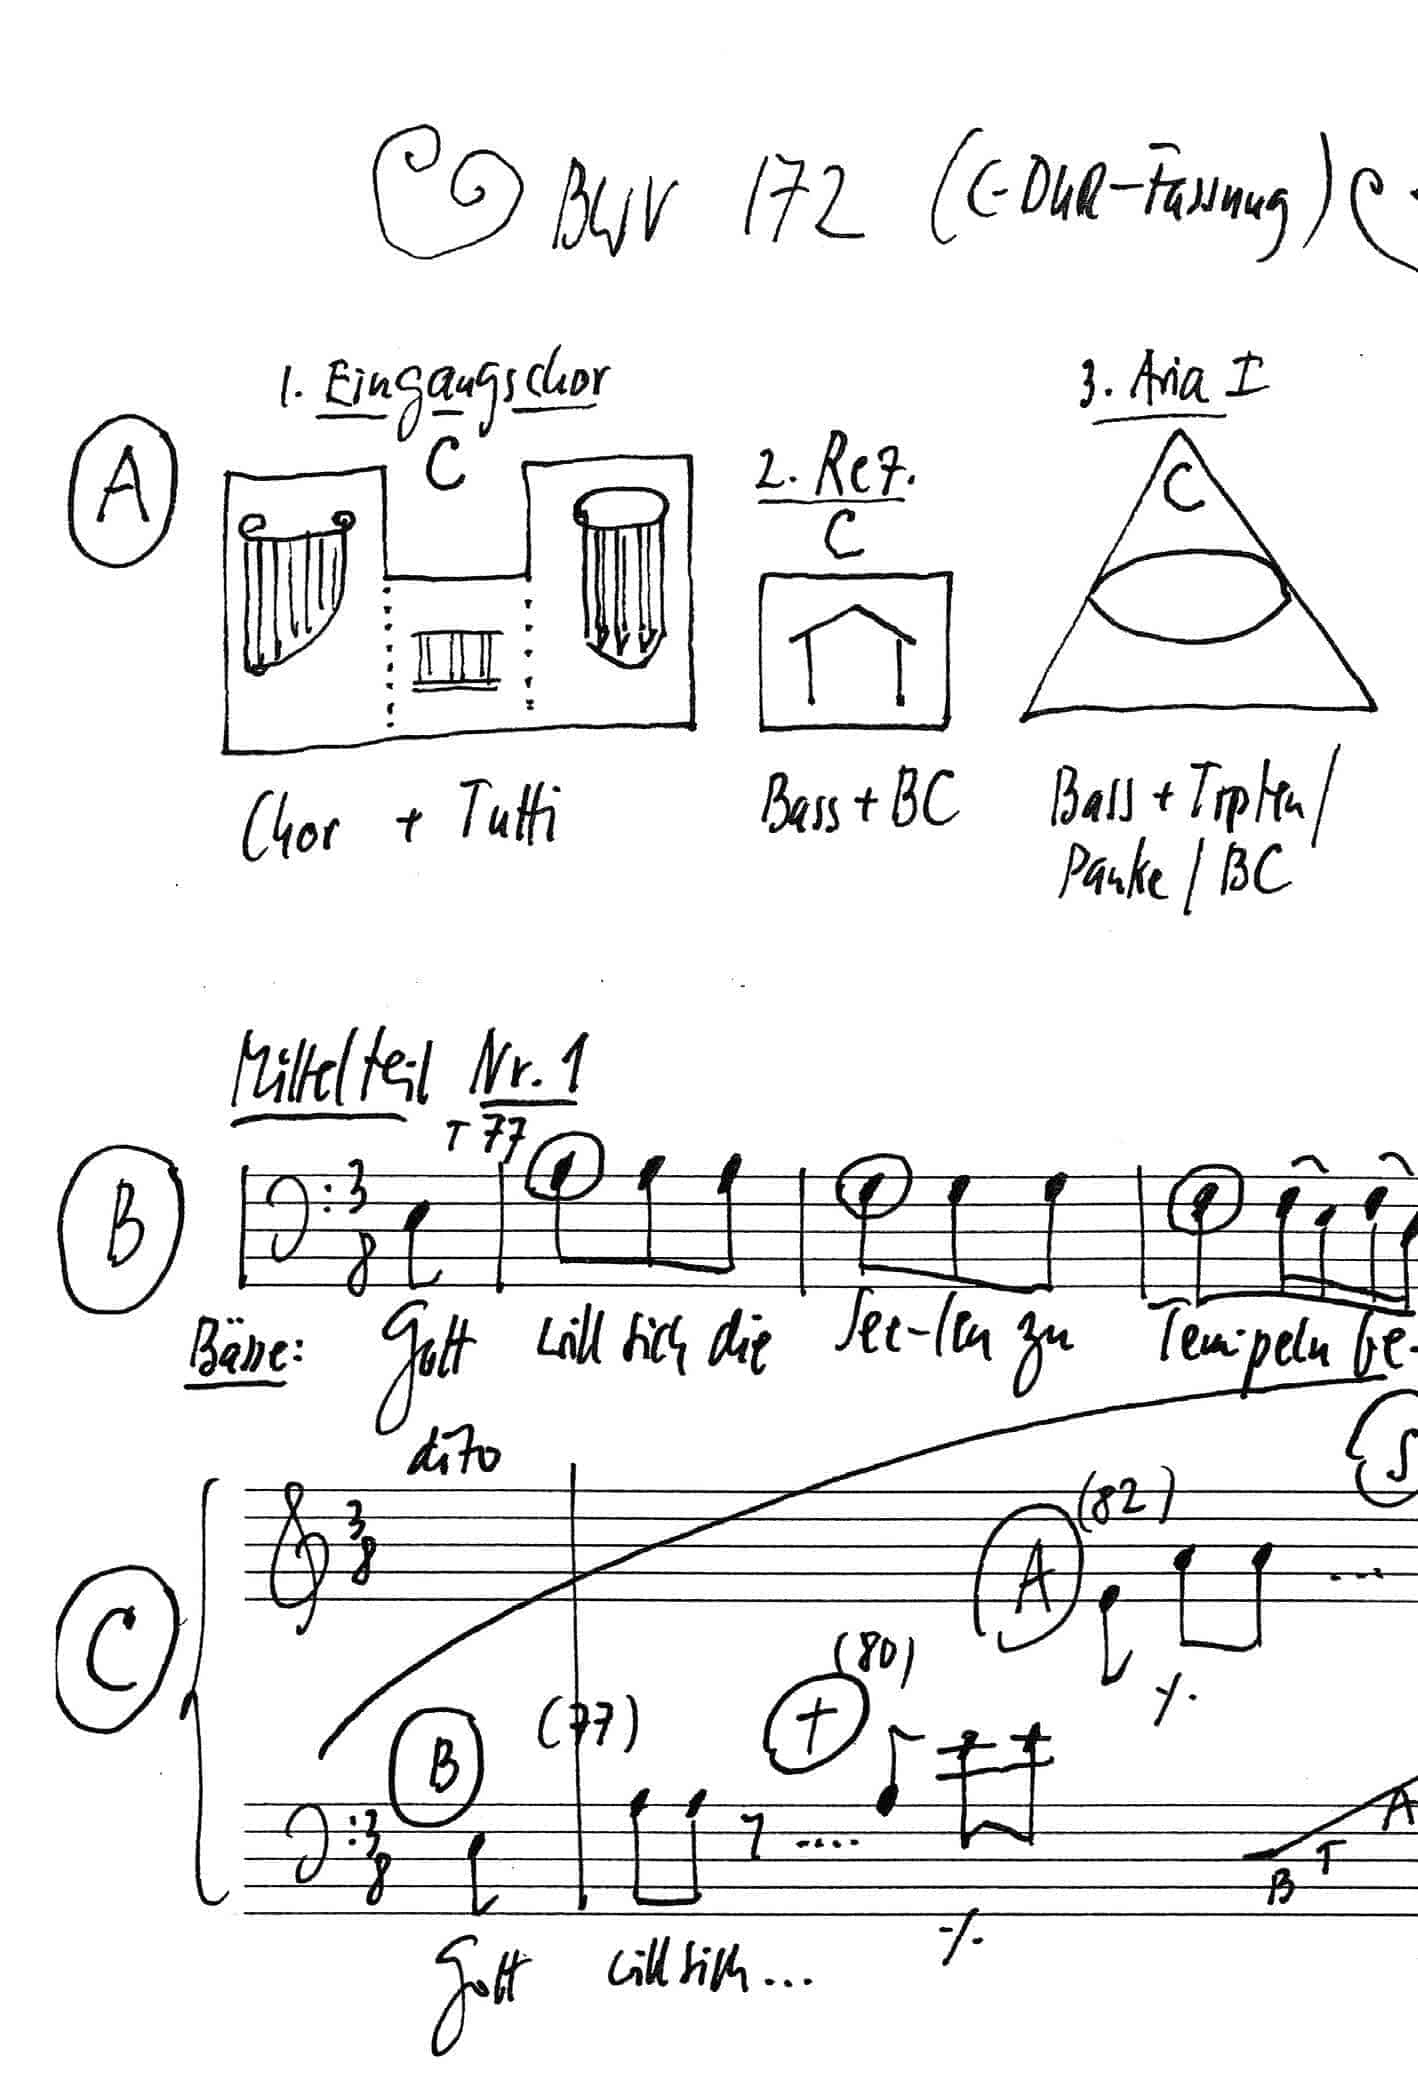 BWV 172 (C-DUR-Fassung)
1. Eingangschor
3. Aria I
A
C
2. Rez.
C
C
Chor + Tutti
Bass + BC
Bass + Trpten/
Pauke / BC
Mittelteil Nr. 1
T 77
B
3
8
Bässe: Gott will sich die See-len zu Tempeln be-
dito
S
C
3
8
A
(82)
...
B
(77)
T
(80)
3
8
....
B T A
Gott will sich...